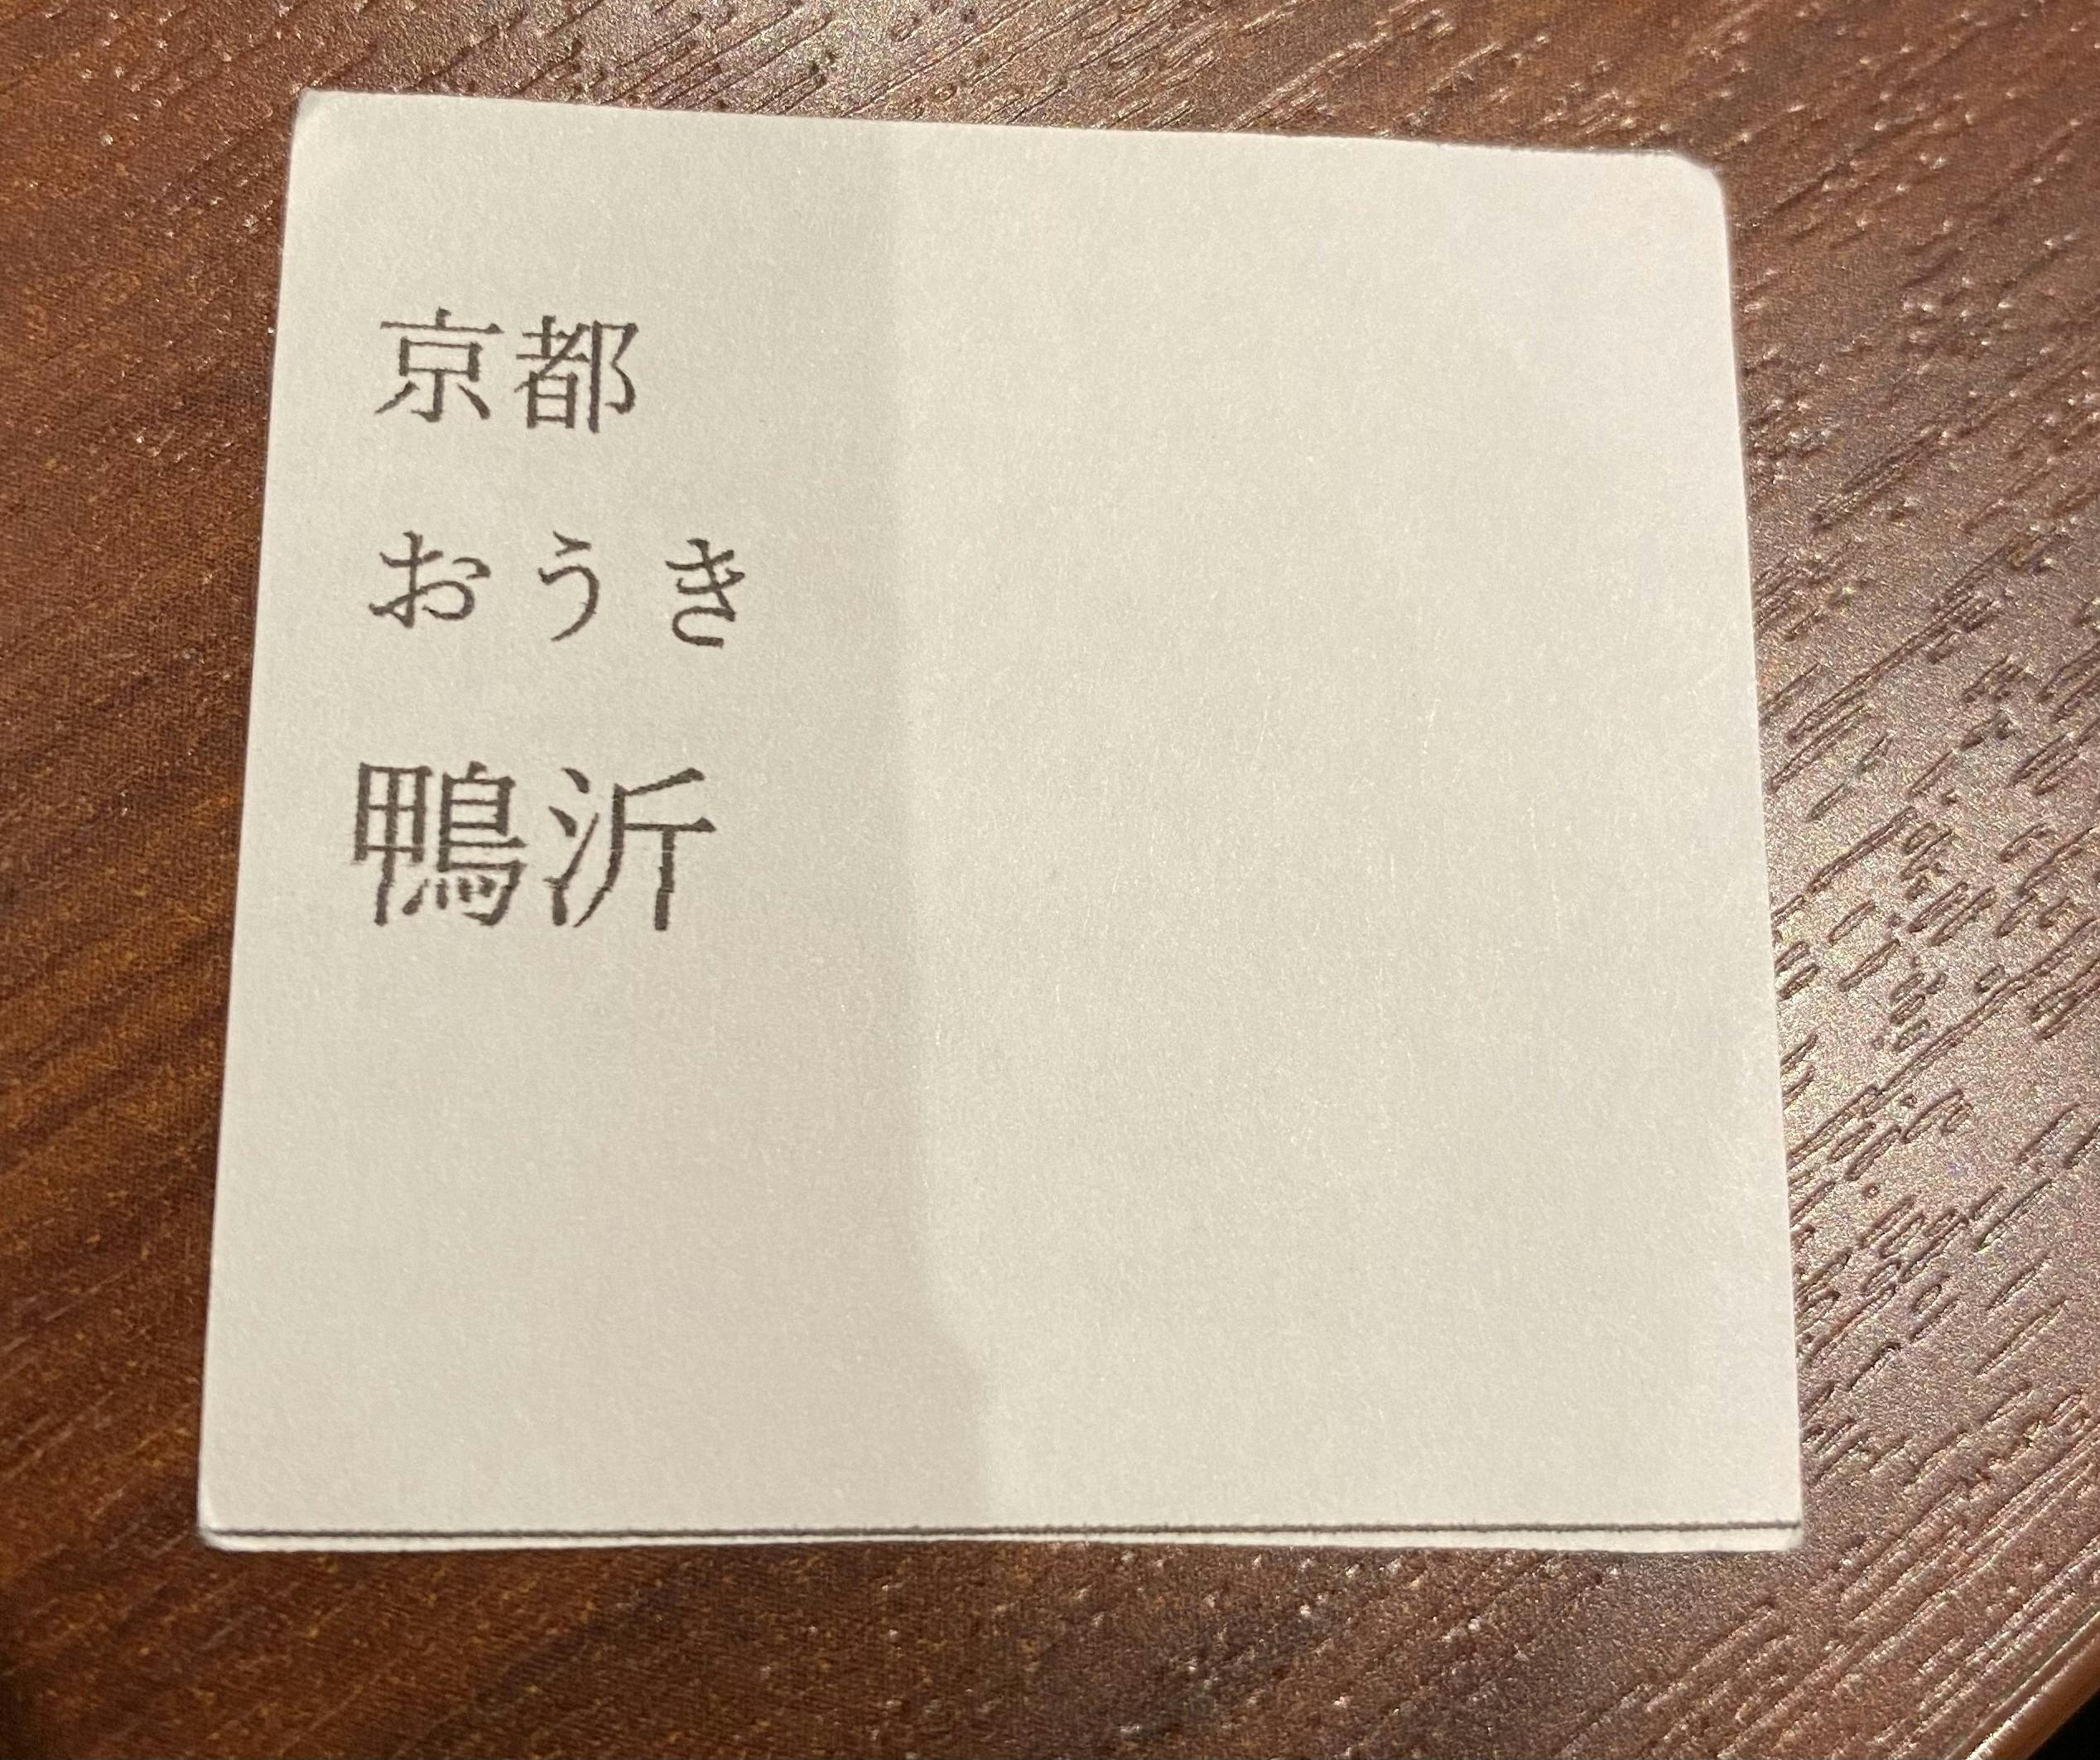 京都
おうき
鴨沂